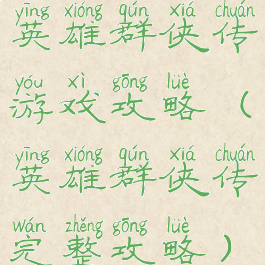 yīng xióng qún xiá chuán
英雄群侠传
yóu xì gōng lüè
游戏攻略（
yīng xióng qún xiá chuán
英雄群侠传
wán zhěng gōng lüè
完整攻略）